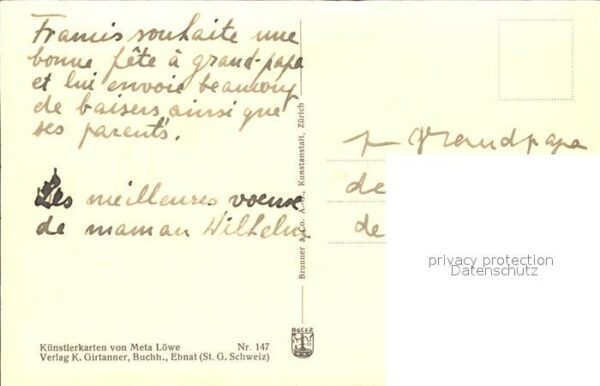 Francis souhaite une
bonne fête à grand-papa
et lui envoie beaucoup
de baisers ainsi que
ses parents.
Les meilleures voeux
de maman Wilhelm
Brunner & Co. A.G., Kunstanstalt, Zürich
pr grandpapa
de
de
privacy protection
Datenschutz
Künstlerkarten von Meta Löwe Nr. 147
Verlag K. Girtanner, Buchh., Ebnat (St. G. Schweiz)